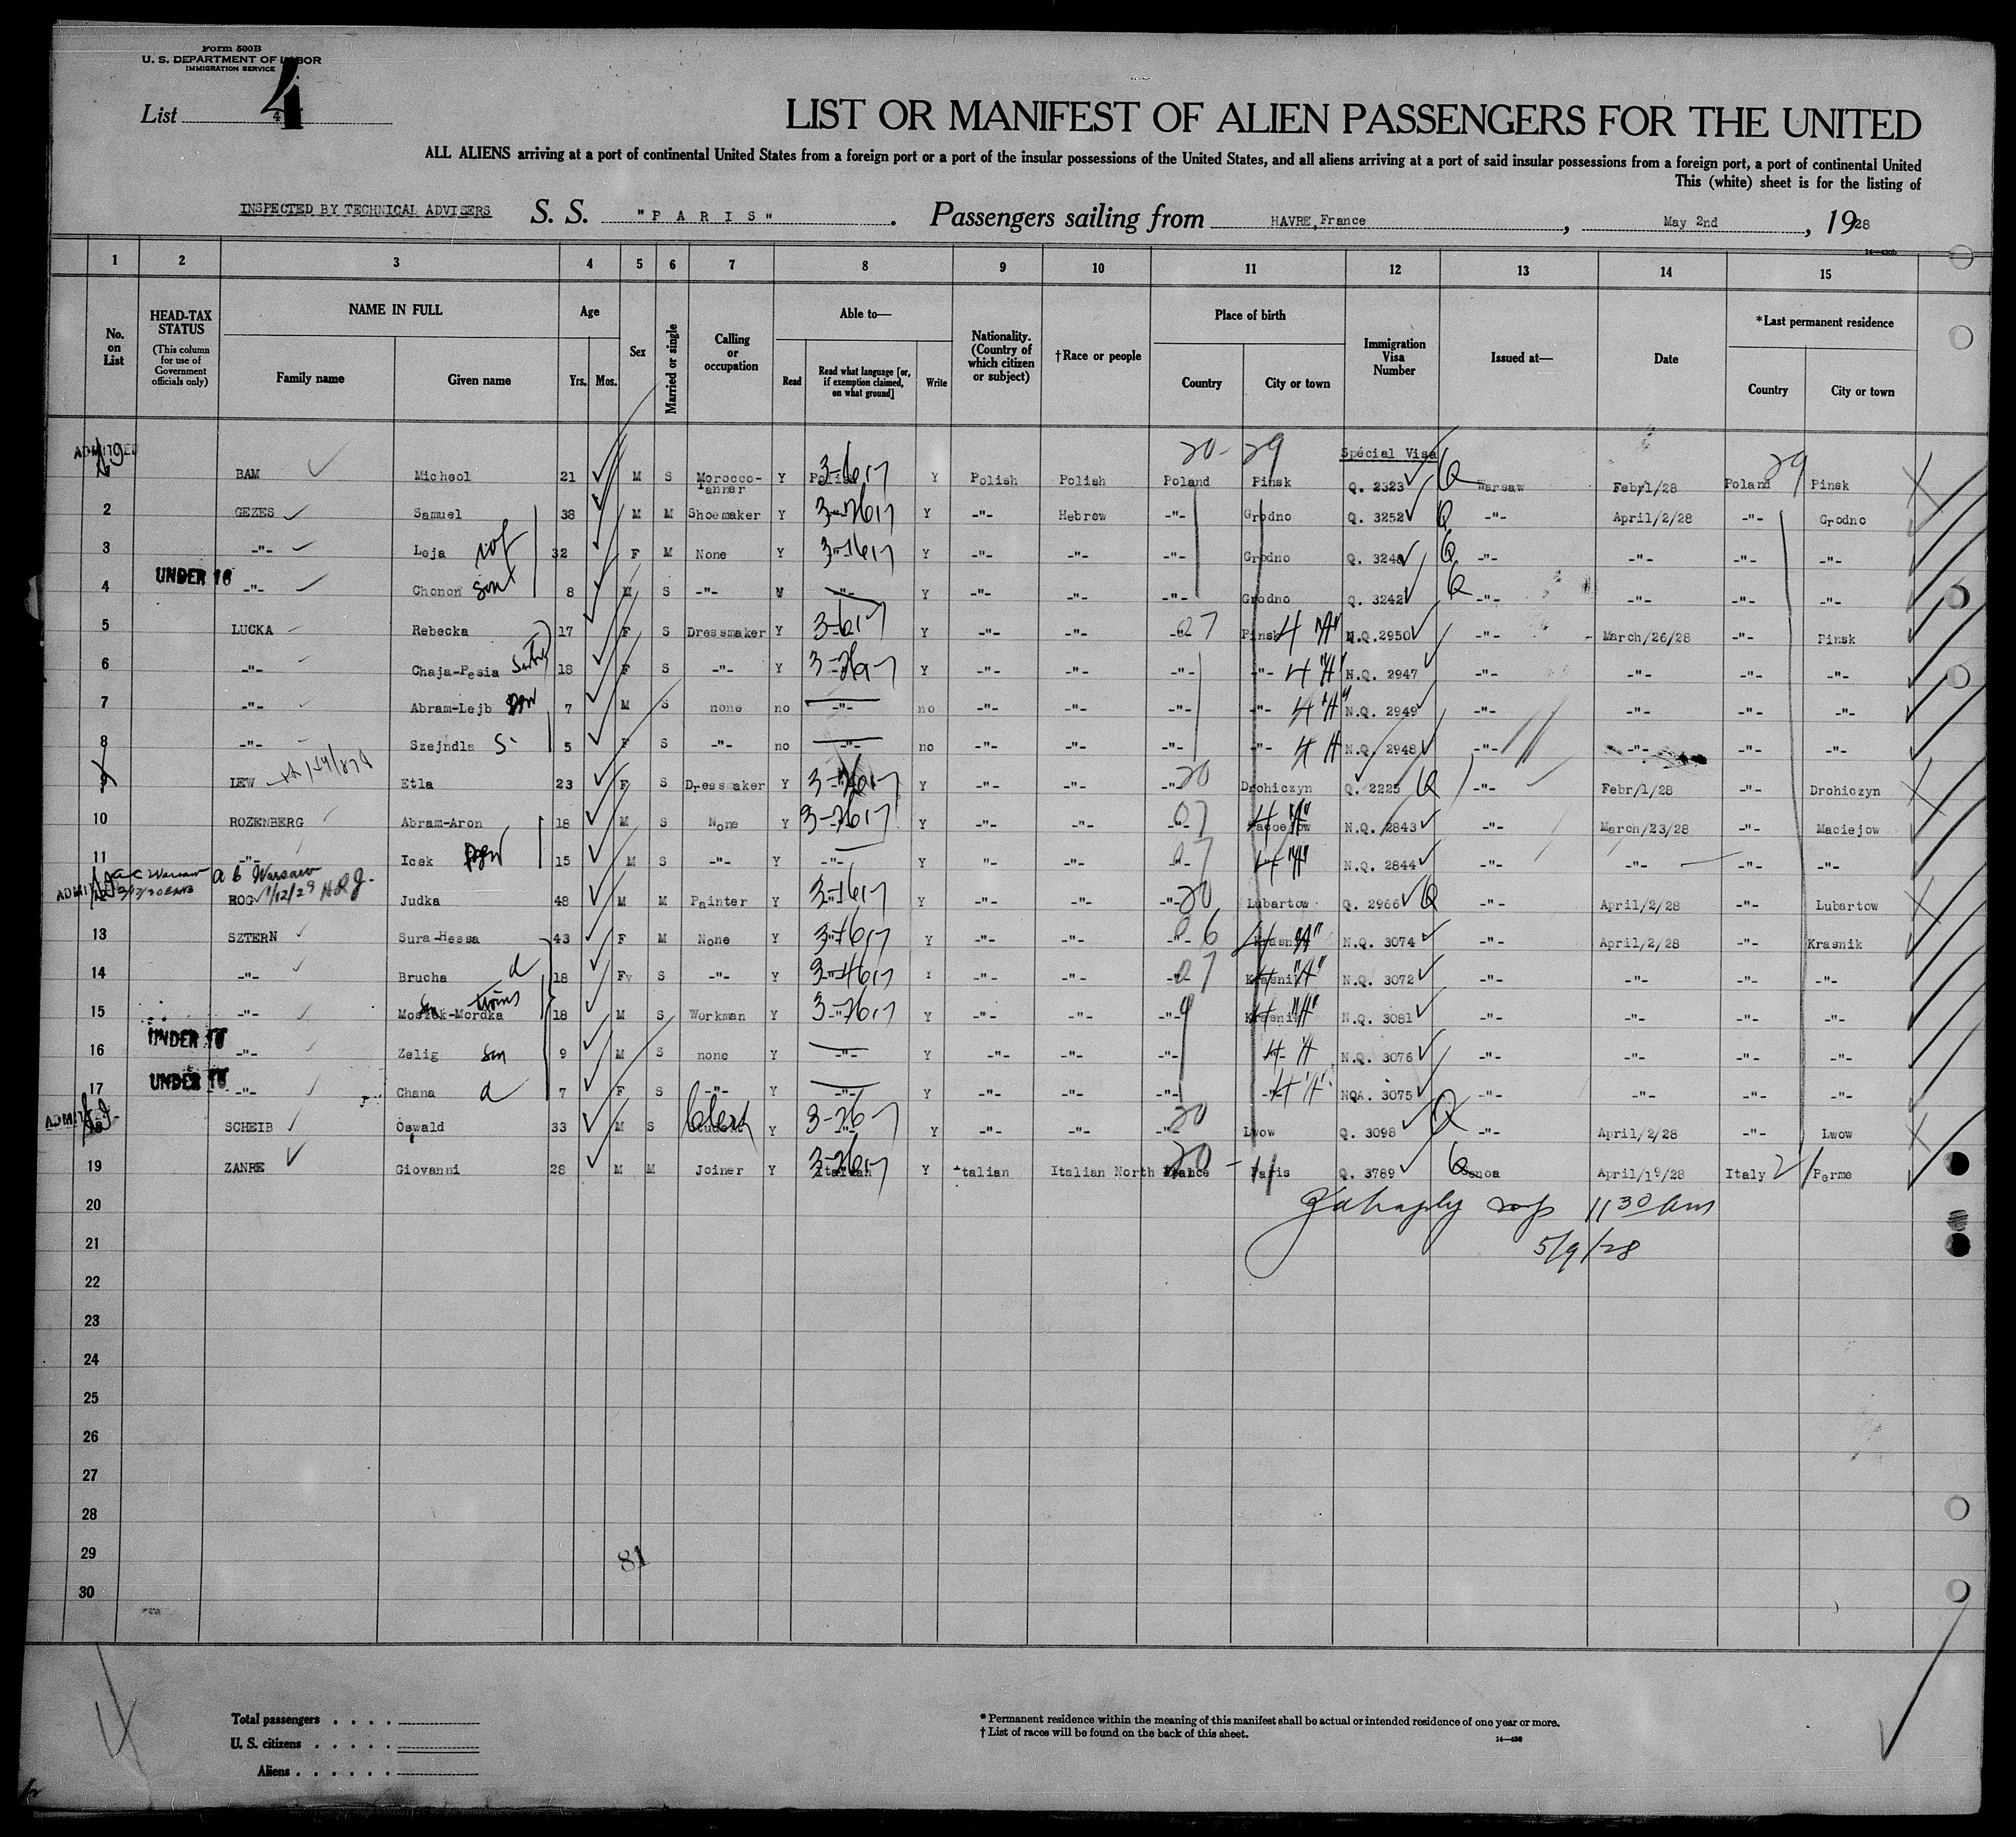 Form 500B
U. S. DEPARTMENT OF LABOR
IMMIGRATION SERVICE
List 4
LIST OR MANIFEST OF ALIEN PASSENGERS FOR THE UNITED
ALL ALIENS arriving at a port of continental United States from a foreign port or a port of the insular possessions of the United States, and all aliens arriving at a port of said insular possessions from a foreign port, a port of continental United
This (white) sheet is for the listing of
INSPECTED BY TECHNICAL ADVISERS S. S. "PARIS". Passengers sailing from HAVRE, France, May 2nd, 1928
1 2 3 4 5 6 7 8 9 10 11 12 13 14 15
No. on List
HEAD-TAX STATUS
(This column for use of Government officials only)
NAME IN FULL
Family name Given name
Age
Yrs. Mos.
Sex
Married or single
Calling or occupation
Able to—
Read
Read what language [or, if exemption claimed, on what ground]
Write
Nationality. (Country of which citizen or subject)
†Race or people
Place of birth
Country City or town
Immigration Visa Number
Issued at—
Date
*Last permanent residence
Country City or town
ADMITTED 20-29 Spécial Visa 29
BAM Micheol 21 M S Morocco-Tanner Y Y Polish Polish Poland Pinsk Q. 2323 Q Warsaw Feb/1/28 Poland Pinsk
2 GEZES Samuel 38 M M Shoemaker Y Y -"- Hebrew -"- Grodno Q. 3252 Q -"- April/2/28 -"- Grodno
3 -"- Leja 32 F M None Y Y -"- -"- -"- Grodno Q -"- -"- -"- -"-
4 UNDER 16 -"- Chonon son 8 M S -"- -"- Y -"- -"- -"- Grodno Q. 3242 Q -"- -"- -"- -"-
5 LUCKA Rebecka 17 F S Dressmaker Y Y -"- -"- -"- 07 Pinsk 4 "H" N.Q. 2950 -"- March/26/28 -"- Pinsk
6 -"- Chaja-Pesia 18 F S -"- Y Y -"- -"- -"- -"- 4 "H" N.Q. 2947 -"- -"- -"- -"-
7 -"- Abram-Lejb 7 M S none no -"- no -"- -"- -"- -"- 4 "H" N.Q. 2949 -"- -"- -"- -"-
8 -"- Szejndla S 5 F S -"- no -"- no -"- -"- -"- -"- 4 H N.Q. 2948 -"- -"- -"- -"-
9 LEW Etla 23 F S Dressmaker Y Y -"- -"- -"- 20 Drohiczyn Q. 2225 Q -"- Febr/1/28 -"- Drohiczyn
10 ROZENBERG Abram-Aron 18 M S None Y Y -"- -"- -"- 07 4 "H" N.Q. 2843 -"- March/23/28 -"- Maciejow
11 -"- Icek 15 M S -"- Y -"- Y "- -"- -"- 07 4 "H" N.Q. 2844 -"- -"- -"- -"-
a c Warsaw a b Warsaw
ROG Judka 48 M M Painter Y Y -"- -"- -"- 20 Lubartow Q. 2966 Q -"- April/2/28 -"- Lubartow
13 SZTERN Sura-Hessa 43 F M None Y Y -"- -"- -"- 06 N.Q. 3074 -"- April/2/28 -"- Krasnik
14 -"- Brucha d 18 F S -"- Y -"- -"- -"- 07 Krasnik N.Q. 3072 -"- -"- -"- -"-
15 -"- Moszek-Mordka twins 18 M S Workman Y Y -"- -"- -"- Krasnik N.Q. 3081 -"- -"- -"- -"-
16 UNDER 16 -"- Zelig son 9 M S none Y -"- Y -"- -"- -"- 4 H N.Q. 3076 -"- -"- -"- -"-
17 UNDER 16 -"- Chana d 7 F S -"- Y -"- Y -"- -"- -"- -"- 4 "H" NQA. 3075 -"- -"- -"- -"-
SCHEIB Oswald 33 M S Clerk Y Y -"- -"- -"- 20 Lwow Q. 3098 Q -"- April/2/28 -"- Lwow
19 ZANRE Giovanni 28 M M Joiner Y Italian Y Italian Italian North 20 Paris Q. 3789 Genoa April/19/28 Italy 21 Perme
20 11 30 am
21 5/9/28
22
23
24
25
26
27
28
29
81
30
Total passengers
U. S. citizens
Aliens
* Permanent residence within the meaning of this manifest shall be actual or intended residence of one year or more.
† List of races will be found on the back of this sheet.